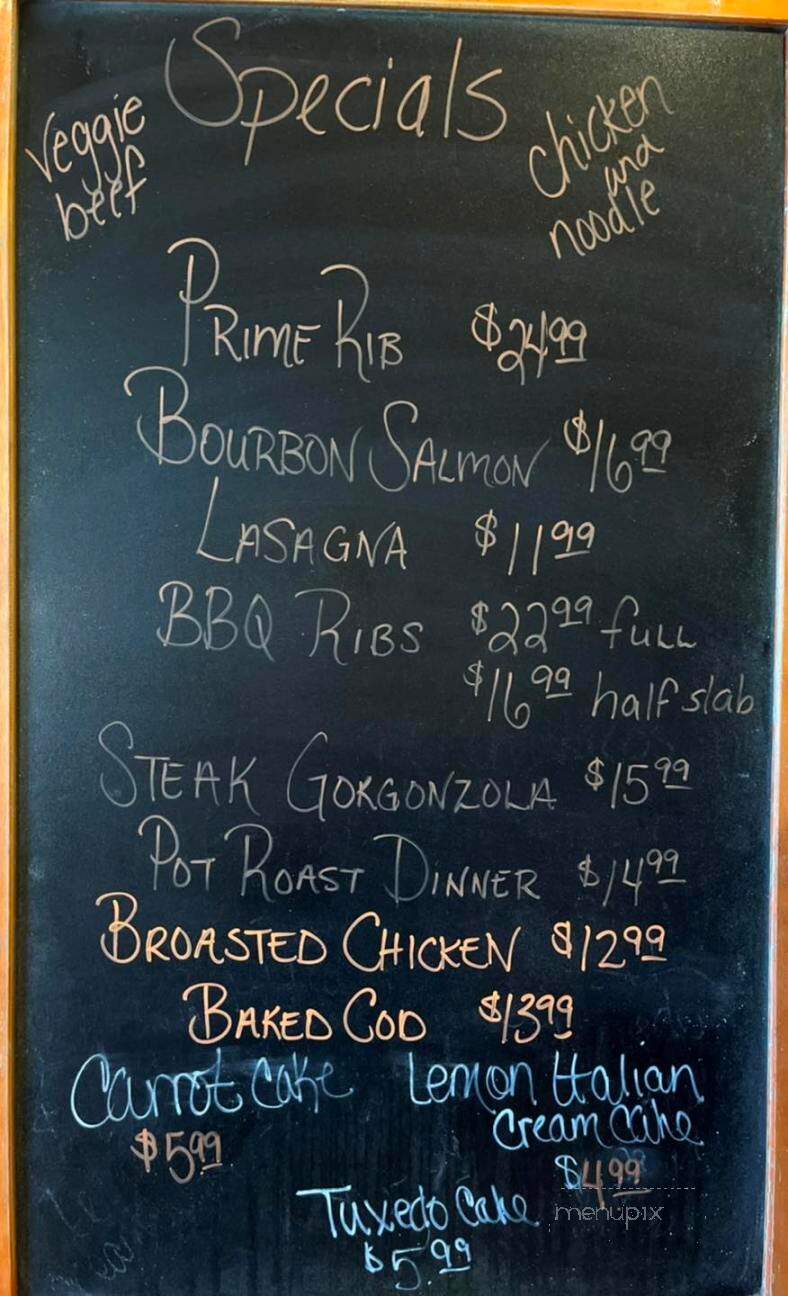 Specials
Veggie
beef
chicken
and
noodle
PRIME RIB $24.99
BOURBON SALMON $16.99
LASAGNA $11.99
BBQ RIBS $22.99 FULL
$16.99 half slab
STEAK GORGONZOLA $15.99
POT ROAST DINNER $14.99
BROASTED CHICKEN $12.99
BAKED COD $13.99
Carrot Cake
$5.99
Lemon Italian
Cream Cake
$4.99
Tuxedo Cake
$5.99
menupix